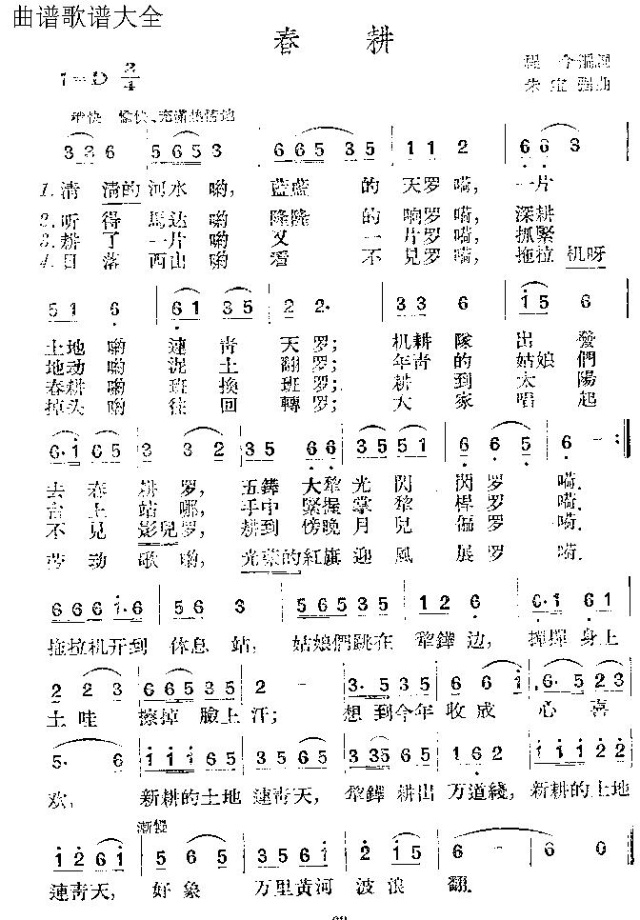 曲谱歌谱大全
春 耕
1=D 2/4
程 今 潘詞
朱 宝 强曲
稍快 愉快、充滿热情地
3 3 6 | 5 6 5 3 | 6 6 5 3 5 | 1 1 2 | 6 6 3 |
1. 清 清的 河水 喲, 藍藍 的 天罗 嗬, 一片
2. 听 得 馬达 喲 隆隆 的 响罗 嗬, 深耕
3. 耕 了 一片 喲 又 一 片罗 嗬, 抓緊
4. 日 落 西山 喲 看 不 見罗 嗬, 拖拉 机呀
5 1 6 | 6 1 3 5 | 2 2· | 3 3 6 | 1 5 6 |
土地 喲 連 靑 天 罗; 机耕 隊 出 發
地动 喲 泥 土 翻 罗; 年靑 的 姑娘 們
春耕 喲 班 換 班 罗; 耕 到 太 陽
掉头 喲 往 回 轉 罗; 大 家 唱 起
6·1 6 5 | 3 3 2 | 3 5 6 6 | 3 5 5 1 | 6 6 5 | 6 - :‖
去 春 耕 罗, 五鏵 大犂 光 閃 閃 罗 嗬.
台 上 站 哪, 手中 緊握 掌 犂 桿 罗 嗬.
不 見 影兒 罗, 耕到 傍晚 月 兒 偏 罗 嗬.
劳 动 歌 喲, 光荣的 紅旗 迎 風 展 罗 嗬.
6 6 6 1·6 | 5 6 3 | 5 6 5 3 5 | 1 2 6 | 6·1 6 1 |
拖拉机开到 休息 站, 姑娘們跳在 犂鏵 边, 撣撣 身上
2 2 3 | 6 6 5 3 5 | 2 - | 3·5 3 5 | 6 6 1 | 6·5 2 3 |
土 哇 擦掉 臉上 汗; 想 到今年 收成 心 喜
5· 6 | 1 1 1 6 5 | 3 5 3 5 | 3 3 5 6 5 | 1 6 2 | 1 1 1 2 2 |
欢, 新耕的土地 連靑天, 犂鏵 耕出 万道綫, 新耕的土地
漸慢
1 2 6 1 | 5 6 5 | 3 5 6 1 | 2 1 5 | 6 - | 6 0 ‖
連靑天, 好 象 万里黃河 波 浪 翻.